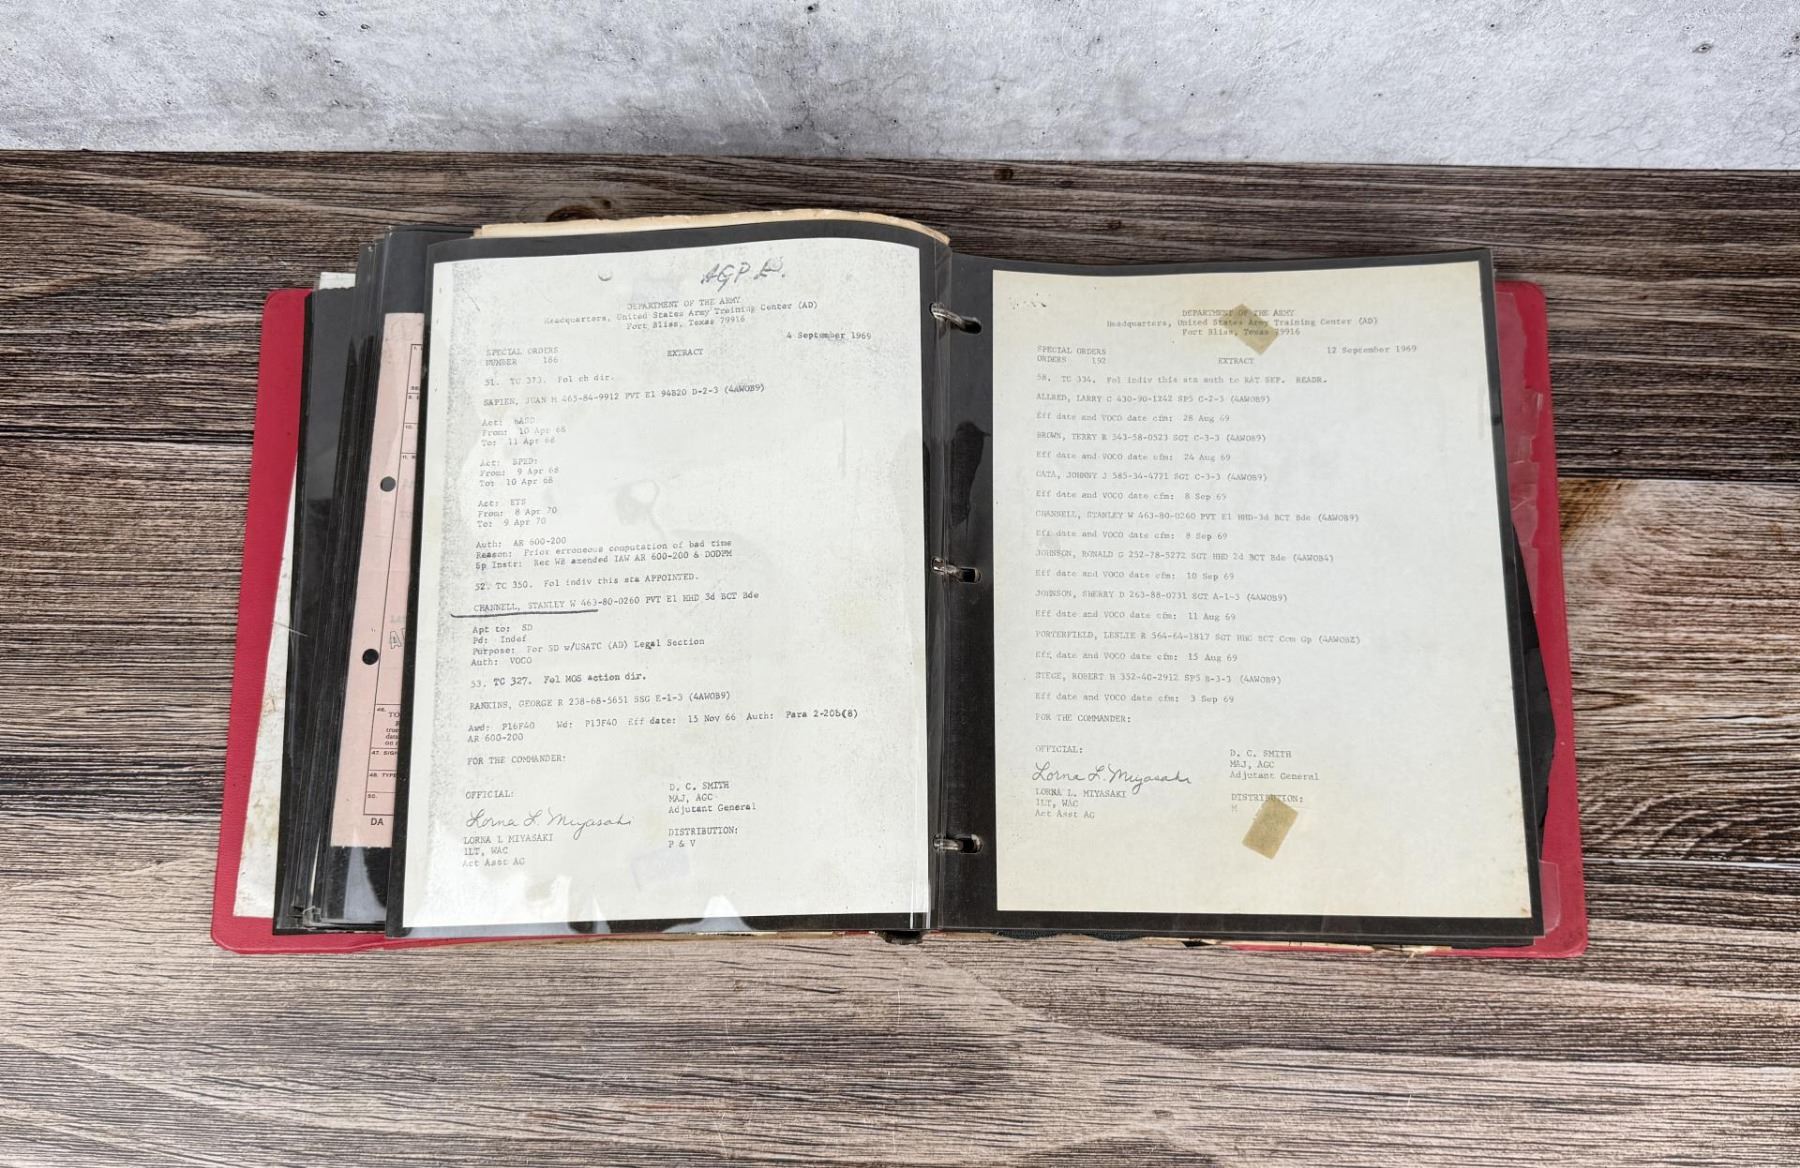 AGPL
DEPARTMENT OF THE ARMY
Headquarters, United States Army Training Center (AD)
Fort Bliss, Texas 79916
4 September 1969
SPECIAL ORDERS EXTRACT
NUMBER 186
51. TC 373. Fol ch dir.
SAPIEN, JUAN M 465-84-9912 PVT E1 94B20 D-2-3 (4AWOB9)
Act: BASD
From: 10 Apr 68
To: 11 Apr 68
Act: BPED:
From: 9 Apr 68
To: 10 Apr 68
Act: ETS
From: 8 Apr 70
To: 9 Apr 70
Auth: AR 600-200
Reason: Prior erroneous computation of bad time
Sp Instr: Rec W8 amended IAW AR 600-200 & DODPM
52. TC 350. Fol indiv this sta APPOINTED.
CHANNELL, STANLEY W 463-80-0260 PVT E1 HHD 3d BCT Bde
Apt to: SD
Pd: Indef
Purpose: For SD w/USATC (AD) Legal Section
Auth: VOCO
53. TC 327. Fol MOS action dir.
RANKINS, GEORGE R 238-68-5651 SSG E-1-3 (4AWOB9)
Awd: P16F40 Wd: P13F40 Eff date: 15 Nov 66 Auth: Para 2-20b(8)
AR 600-200
FOR THE COMMANDER:
OFFICIAL:
D. C. SMITH
MAJ, AGC
Adjutant General
Lorna L. Miyasaki
LORNA L MIYASAKI
1LT, WAC
Act Asst AG
DISTRIBUTION:
P & V
DEPARTMENT OF THE ARMY
Headquarters, United States Army Training Center (AD)
Fort Bliss, Texas 79916
SPECIAL ORDERS 12 September 1969
ORDERS 192 EXTRACT
58. TC 334. Fol indiv this sta auth to RAT SEP. READR.
ALLRED, LARRY C 430-90-1242 SP5 C-2-3 (4AWOB9)
Eff date and VOCO date cfm: 28 Aug 69
BROWN, TERRY R 343-58-0523 SGT C-3-3 (4AWOB9)
Eff date and VOCO date cfm: 24 Aug 69
CATA, JOHNNY J 585-34-4771 SGT C-3-3 (4AWOB9)
Eff date and VOCO date cfm: 8 Sep 69
CHANNELL, STANLEY W 463-80-0260 PVT E1 HHD-3d BCT Bde (4AWOB9)
Eff date and VOCO date cfm: 8 Sep 69
JOHNSON, RONALD G 252-78-5272 SGT HHD 2d BCT Bde (4AWOB4)
Eff date and VOCO date cfm: 10 Sep 69
JOHNSON, SHERRY D 263-88-0731 SGT A-1-3 (4AWOB9)
Eff date and VOCO date cfm: 11 Aug 69
PORTERFIELD, LESLIE R 564-64-1817 SGT HHC BCT Com Gp (4AWOBZ)
Eff date and VOCO date cfm: 15 Aug 69
STEGE, ROBERT H 352-40-2912 SP5 B-3-3 (4AWOB9)
Eff date and VOCO date cfm: 3 Sep 69
FOR THE COMMANDER:
OFFICIAL:
D. C. SMITH
MAJ, AGC
Adjutant General
Lorna L. Miyasaki
LORNA L. MIYASAKI
1LT, WAC
Act Asst AG
DISTRIBUTION:
M
DA